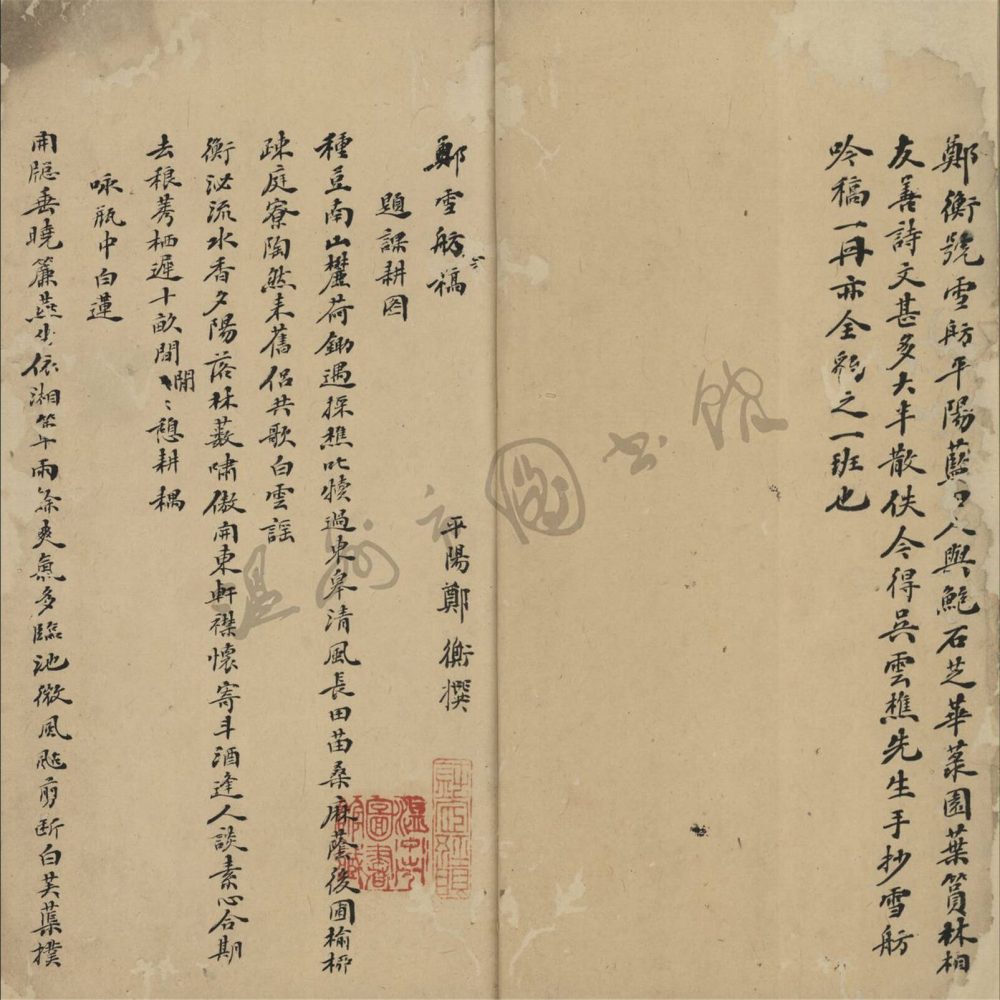 鄭衡號雪舫平陽藍田人與鮑石芝華菉園葉篔林相
友善詩文甚多大半散佚今得吳雲樵先生手抄雪舫
吟稿一冊亦全豹之一班也
鄭雪舫稿
平陽鄭衡撰
題課耕圖
種豆南山麓荷鋤遇採樵叱犢過東皋清風長田苗桑麻蔭後圃榆柳
疎庭寮陶然耒舊侶共歌白雲謠
衡泌流水香夕陽落林藪嘯傲開東軒襟懷寄斗酒逢人談素心合期
去稂莠栖遲十畝間閒憩耕耦
咏瓶中白蓮
開牕垂曉簾燕坐依湘竹午雨餘爽氣多臨池微風颭剪斷白芙蕖撲
溫州市圖書館
溫州市圖書館藏